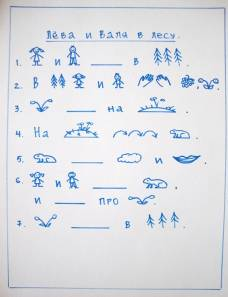 Лёва и Валя в лесу.
1. и ____ в .
2. В и , .
3. ____ на .
4. На .
5. ____ и .
6. и ____ ,
и ____ про .
7. ____ в .